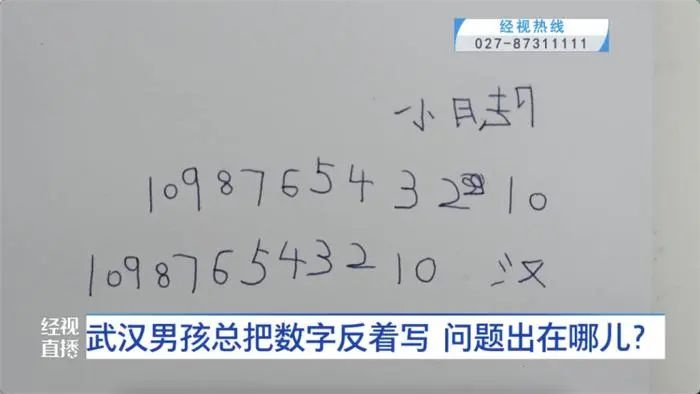 经视热线
027-87311111
小
10 9 8 7 6 5 4 3 2 1 0
10 9 8 7 6 5 4 3 2 1 0 汉
经视直播
武汉男孩总把数字反着写 问题出在哪儿?